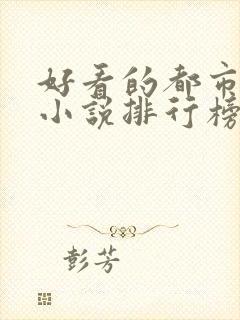 好看的都市
小说排行榜
彭芳